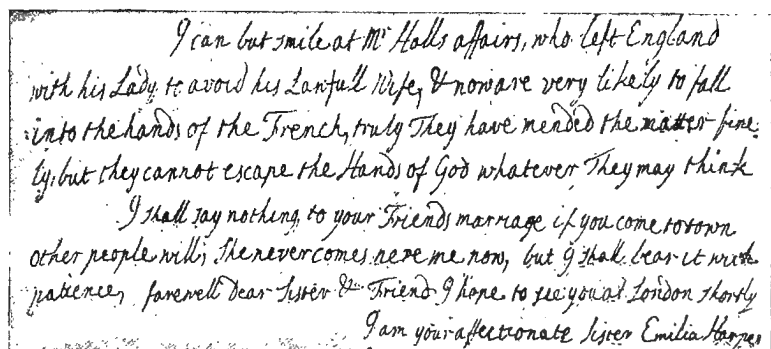 I can but smile at Mr Halls affairs, who left England
with his Lady to avoid his Lawfull Wife, & now are very likely to fall
into the hands of the French, truly They have mended the matter fine
ly, but they cannot escape the Hands of God whatever They may think
I shall say nothing to your Friends marriage if you come to town
other people will, She never comes nere me now, but I shall bear it with
patience, farewell Dear Sister & Friend I hope to see you at London shortly
I am your affectionate Sister Emilia Harper